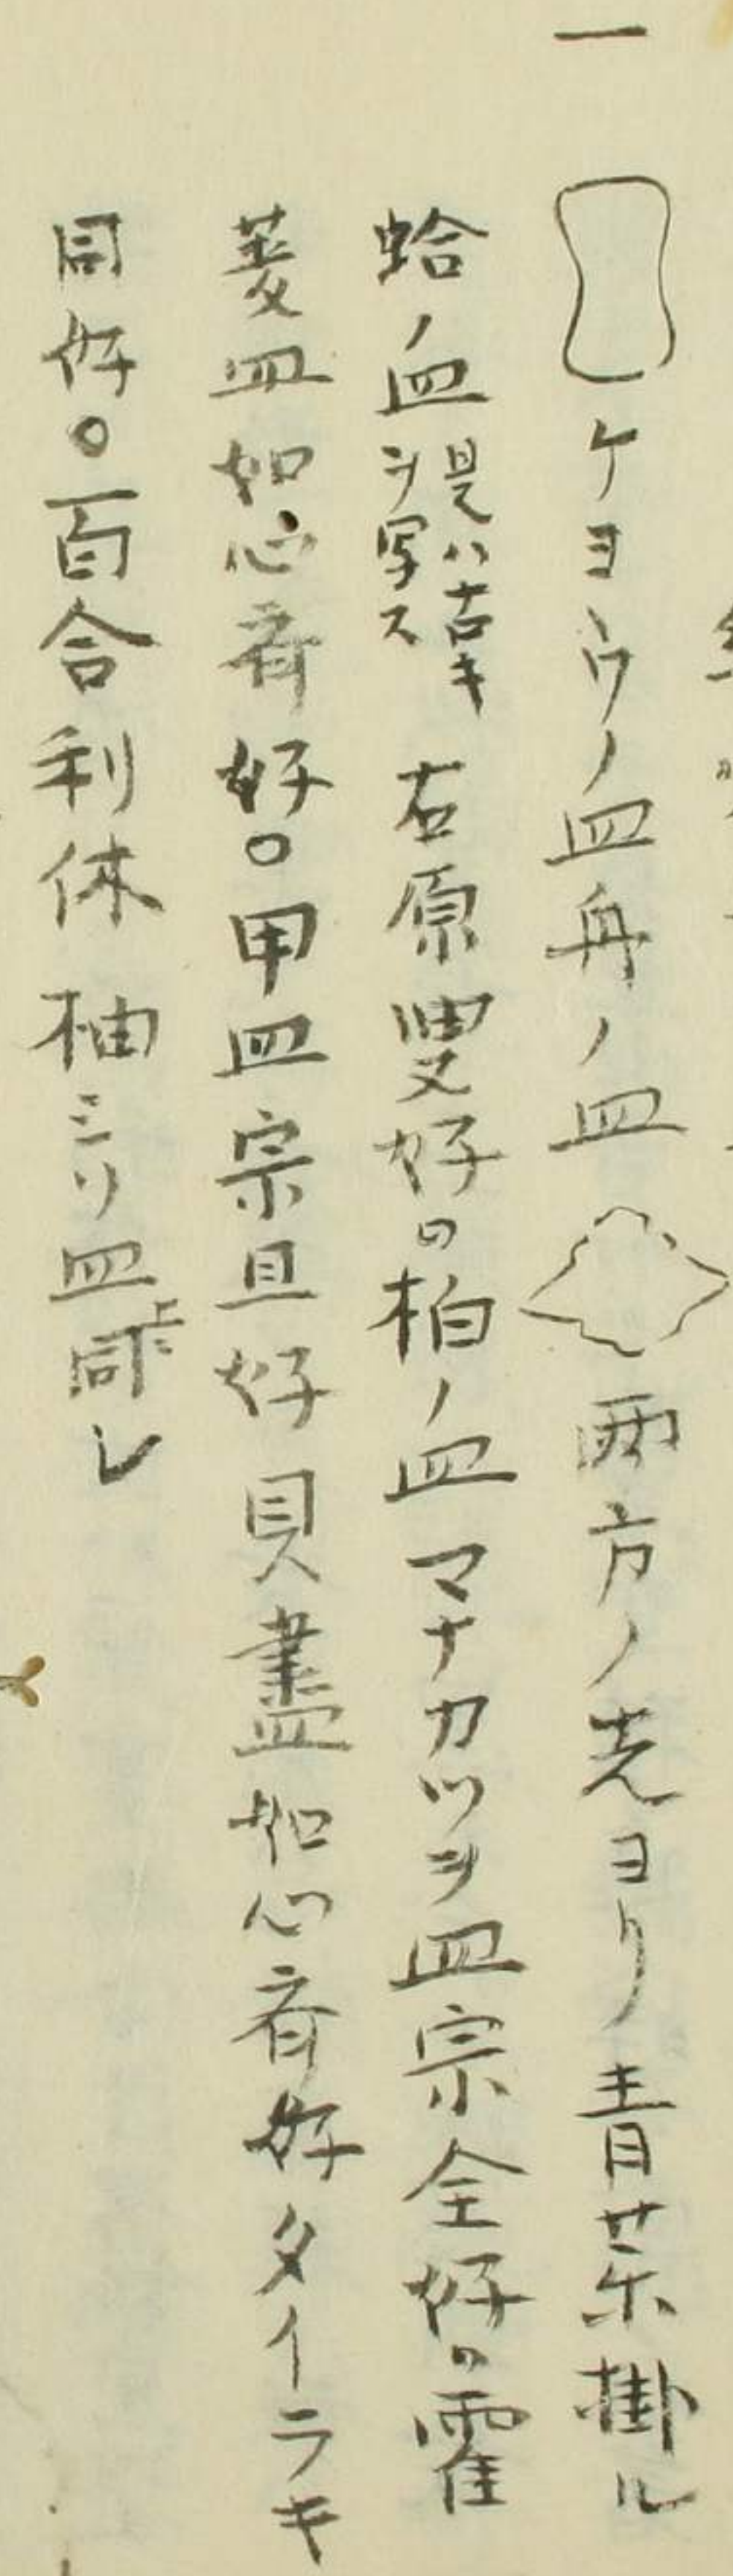 一 ケヨウノ皿舟ノ皿 両方ノ先ヨリ青茶掛ル
蛤ノ皿 是ハ古キヲ写ス 右原叟好〇柏ノ皿マナカツヲ皿宗全好〇霍
菱皿如心斎好〇甲皿宗旦好貝盡如心斎好タイラキ
同好〇百合利休柚ミリ皿同上ニ同シ